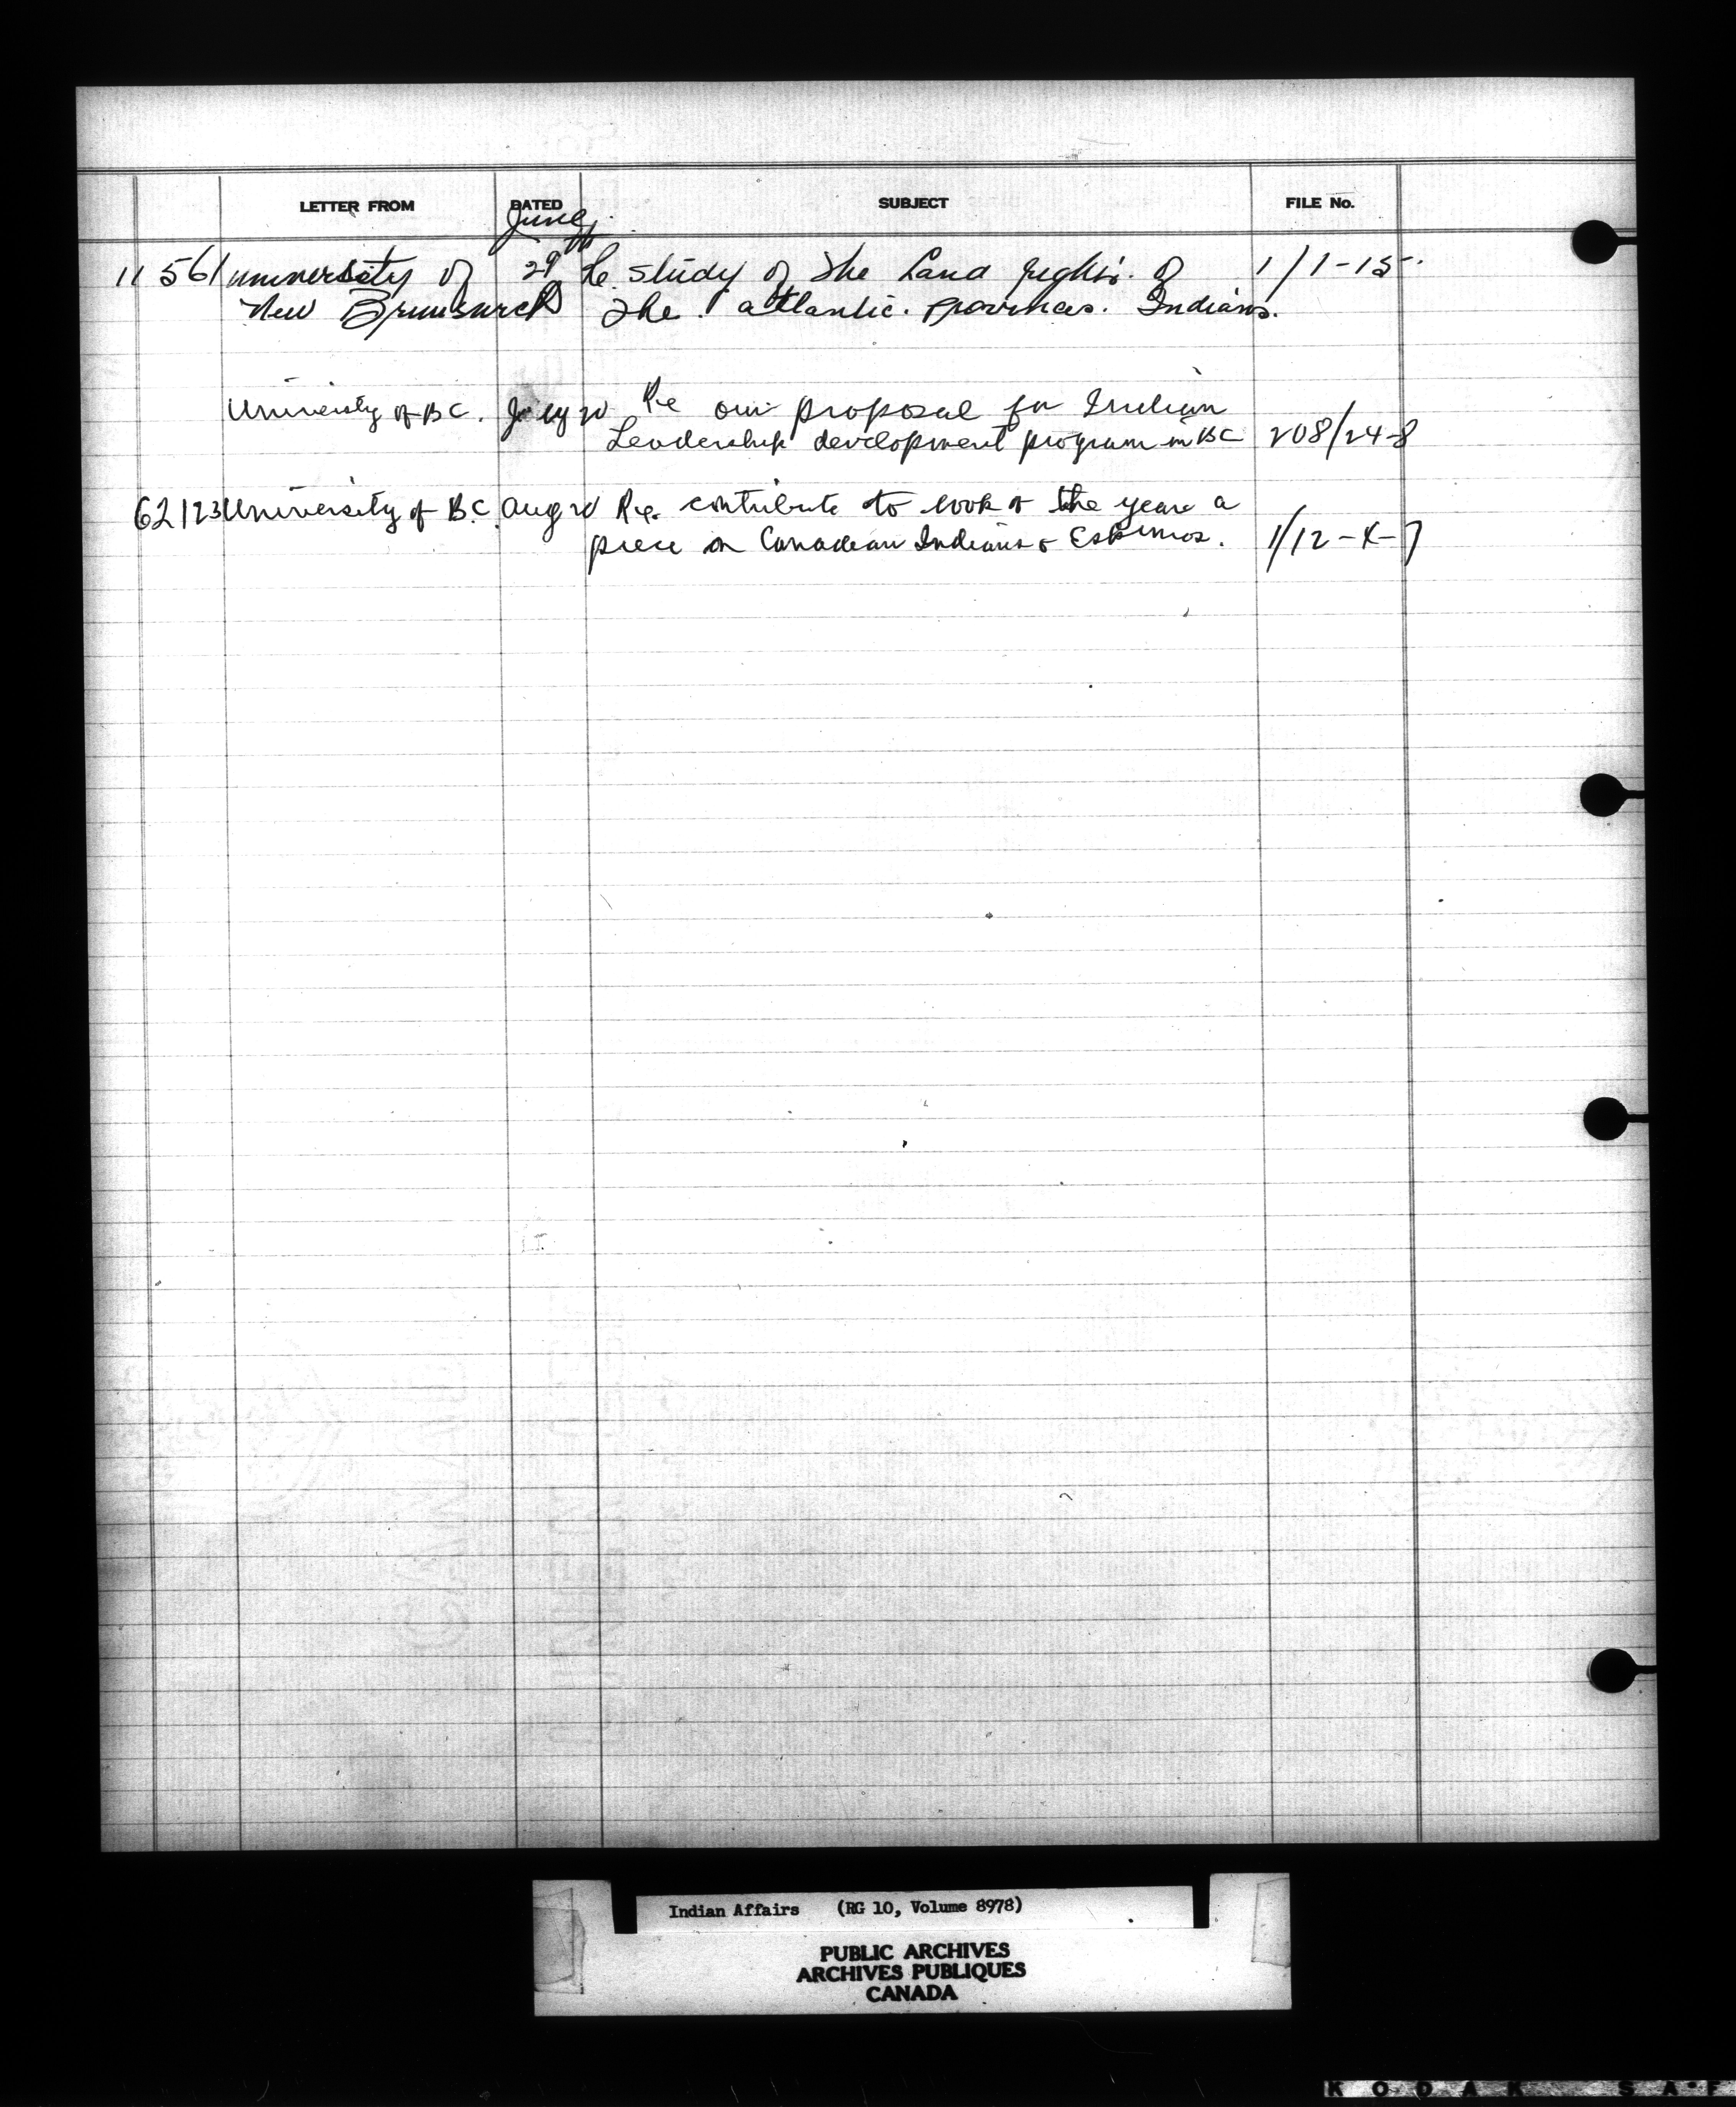 LETTER FROM DATED SUBJECT FILE No.
June
11 561 university of 29th Re. study of the Land rights. of 1/1-15-.
New Brunswick the. atlantic. provinces. Indians.
University of BC. July 20 Re our proposal for Indian
Leadership development program in BC 208/24-8
62123 University of B.C. Aug 20 Re. contribute to book of the year a
piece on Canadian Indians & Eskimos. 1/12-4-7
Indian Affairs (RG 10, Volume 8978)
PUBLIC ARCHIVES
ARCHIVES PUBLIQUES
CANADA
KODAK SAF